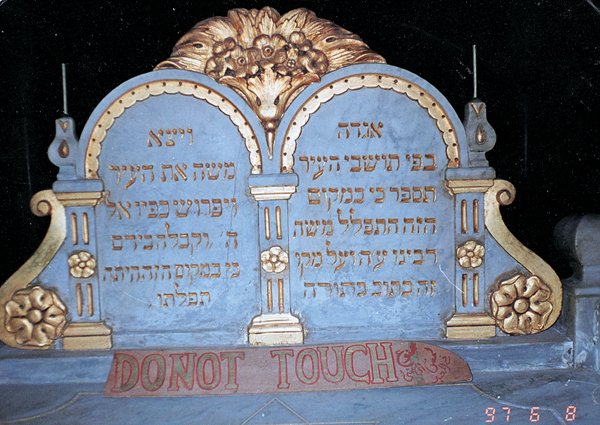 אגדה
בפי תושבי העיר
תספר כי במקום
הזה התפלל משה
רבינו ע״ה ועל מקו
זה כתוב בתורה
ויצא
משה את העיר
ויפרוש כפיו אל
ה׳ וקבלה בידם
כי במקום הזה היתה
תפלתו
DONOT TOUCH
97 6 8